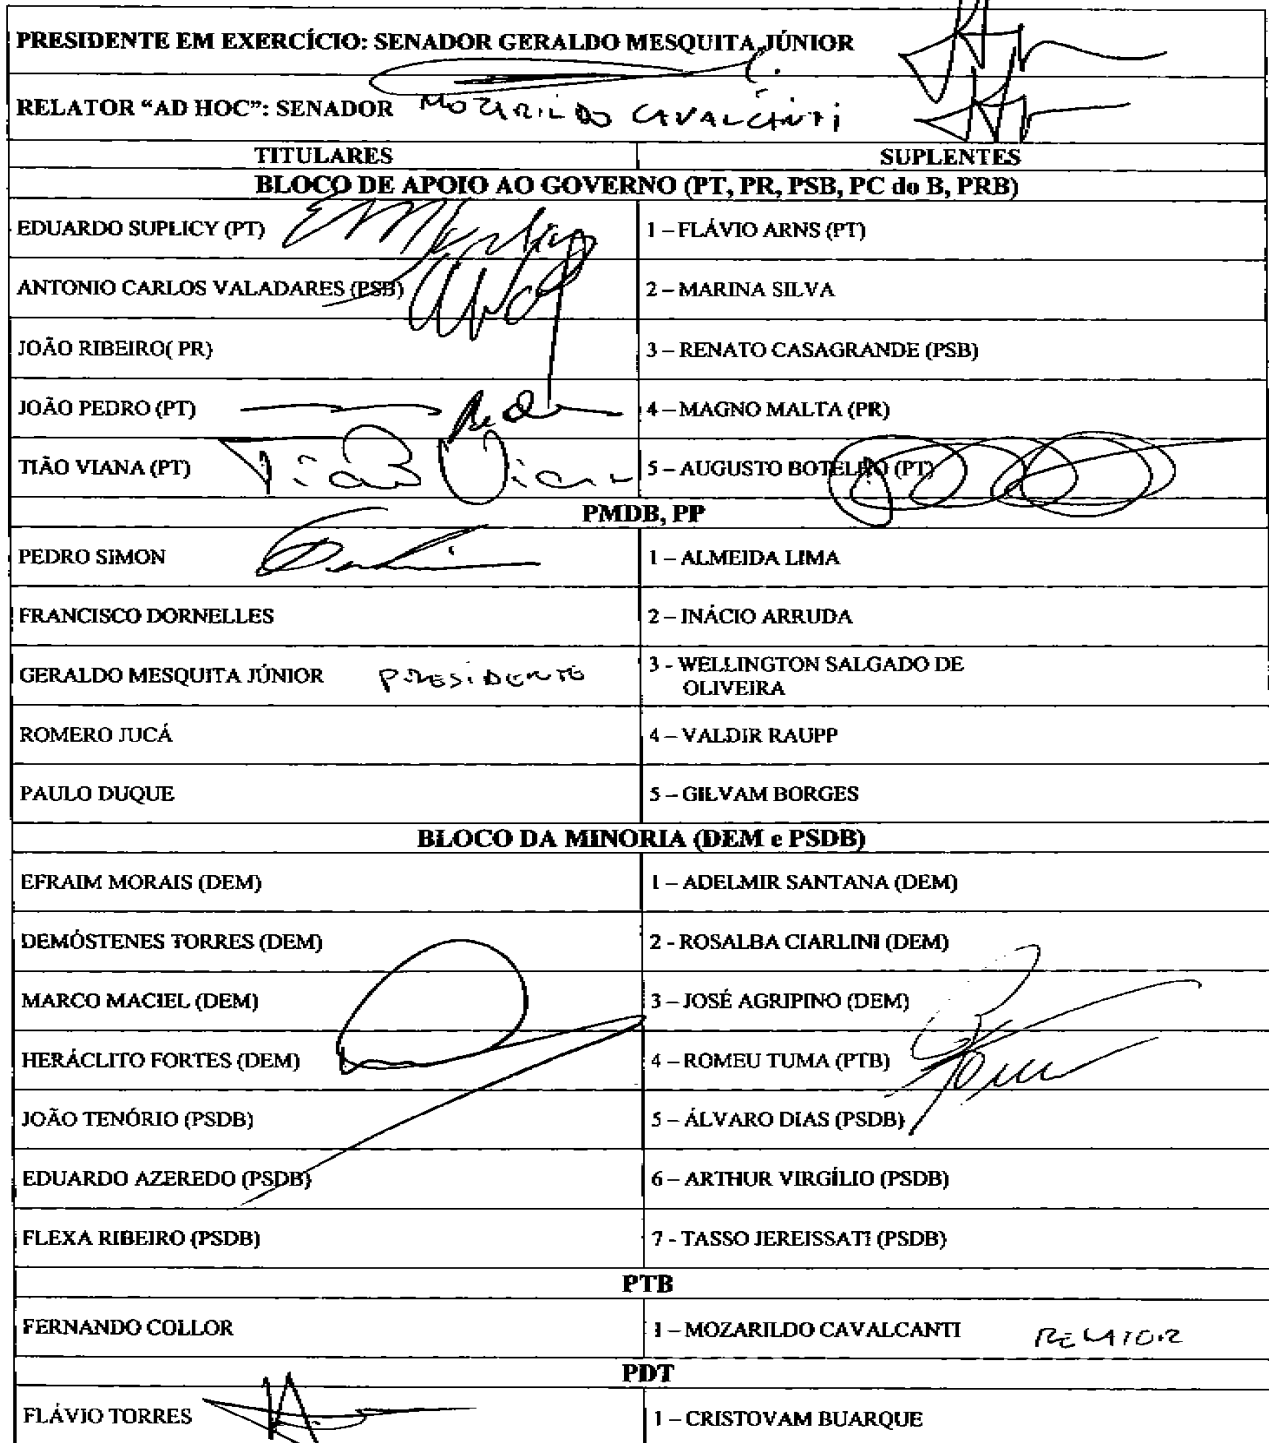 PRESIDENTE EM EXERCÍCIO: SENADOR GERALDO MESQUITA JÚNIOR
RELATOR “AD HOC”: SENADOR MOZARILDO CAVALCANTI
TITULARES SUPLENTES
BLOCO DE APOIO AO GOVERNO (PT, PR, PSB, PC do B, PRB)
EDUARDO SUPLICY (PT) 1 – FLÁVIO ARNS (PT)
ANTONIO CARLOS VALADARES (PSB) 2 – MARINA SILVA
JOÃO RIBEIRO( PR) 3 – RENATO CASAGRANDE (PSB)
JOÃO PEDRO (PT) 4 – MAGNO MALTA (PR)
TIÃO VIANA (PT) Tião Viana 5 – AUGUSTO BOTELHO (PT)
PMDB, PP
PEDRO SIMON 1 – ALMEIDA LIMA
FRANCISCO DORNELLES 2 – INÁCIO ARRUDA
GERALDO MESQUITA JÚNIOR PRESIDENTE 3 - WELLINGTON SALGADO DE
OLIVEIRA
ROMERO JUCÁ 4 – VALDIR RAUPP
PAULO DUQUE 5 – GILVAM BORGES
BLOCO DA MINORIA (DEM e PSDB)
EFRAIM MORAIS (DEM) 1 – ADELMIR SANTANA (DEM)
DEMÓSTENES TORRES (DEM) 2 - ROSALBA CIARLINI (DEM)
MARCO MACIEL (DEM) 3 – JOSÉ AGRIPINO (DEM)
HERÁCLITO FORTES (DEM) 4 – ROMEU TUMA (PTB)
JOÃO TENÓRIO (PSDB) 5 – ÁLVARO DIAS (PSDB)
EDUARDO AZEREDO (PSDB) 6 – ARTHUR VIRGÍLIO (PSDB)
FLEXA RIBEIRO (PSDB) 7 - TASSO JEREISSATI (PSDB)
PTB
FERNANDO COLLOR 1 – MOZARILDO CAVALCANTI RELATOR
PDT
FLÁVIO TORRES 1 – CRISTOVAM BUARQUE